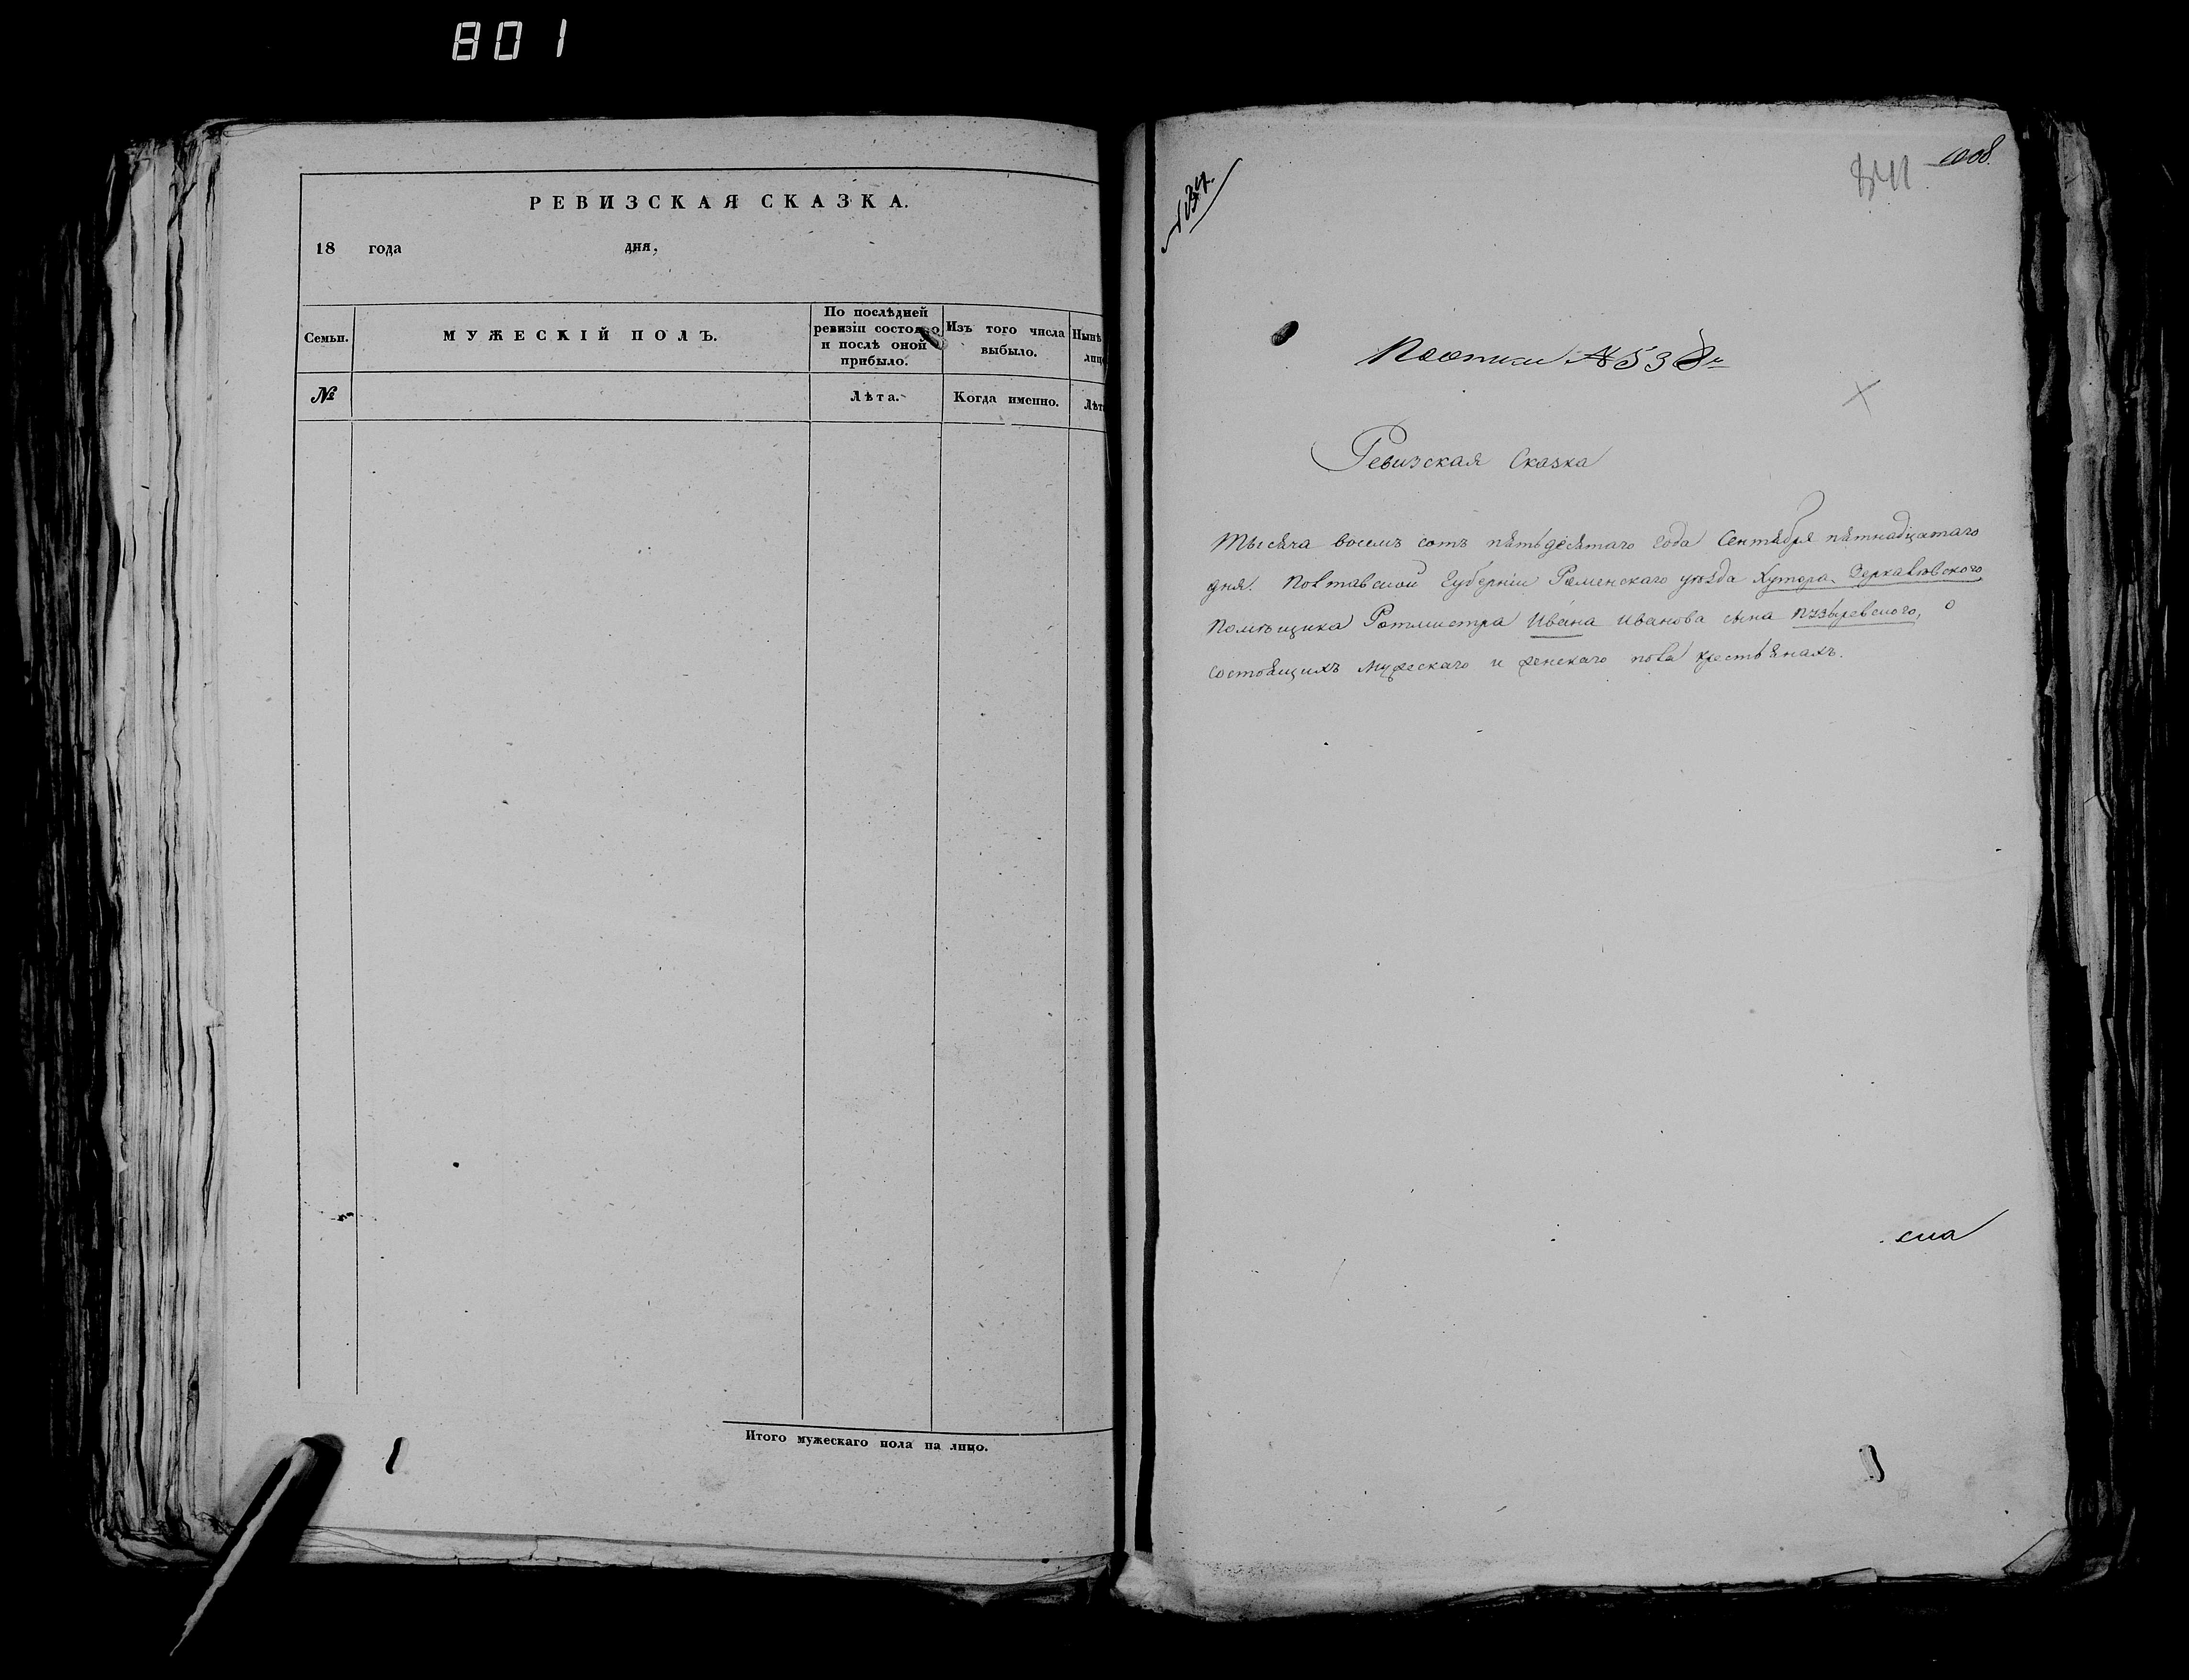 801
РЕВИЗСКАЯ СКАЗКА.
18 года дня,
Семьи.
МУЖЕСКІЙ ПОЛЪ.
По послѣдней
ревизіи состояло
и послѣ оной
прибыло.
Изъ того числа
выбыло.
Нынѣ
лиц
№
Лѣта.
Когда именно.
Лѣт
Итого мужескаго пола на лицо.
1008.
841
По описи № 538й
Ревизская Сказка
Тысяча восемъ сотъ пятьдесятаго года Сентября пятнадцатаго
дня. Полтавской Губерніи Роменскаго уѣзда Хутора
Помѣщика Ротмистра Ивана Иванова сына Пузыревского, о
состоящихъ мужескаго и женскаго пола крестьянахъ.